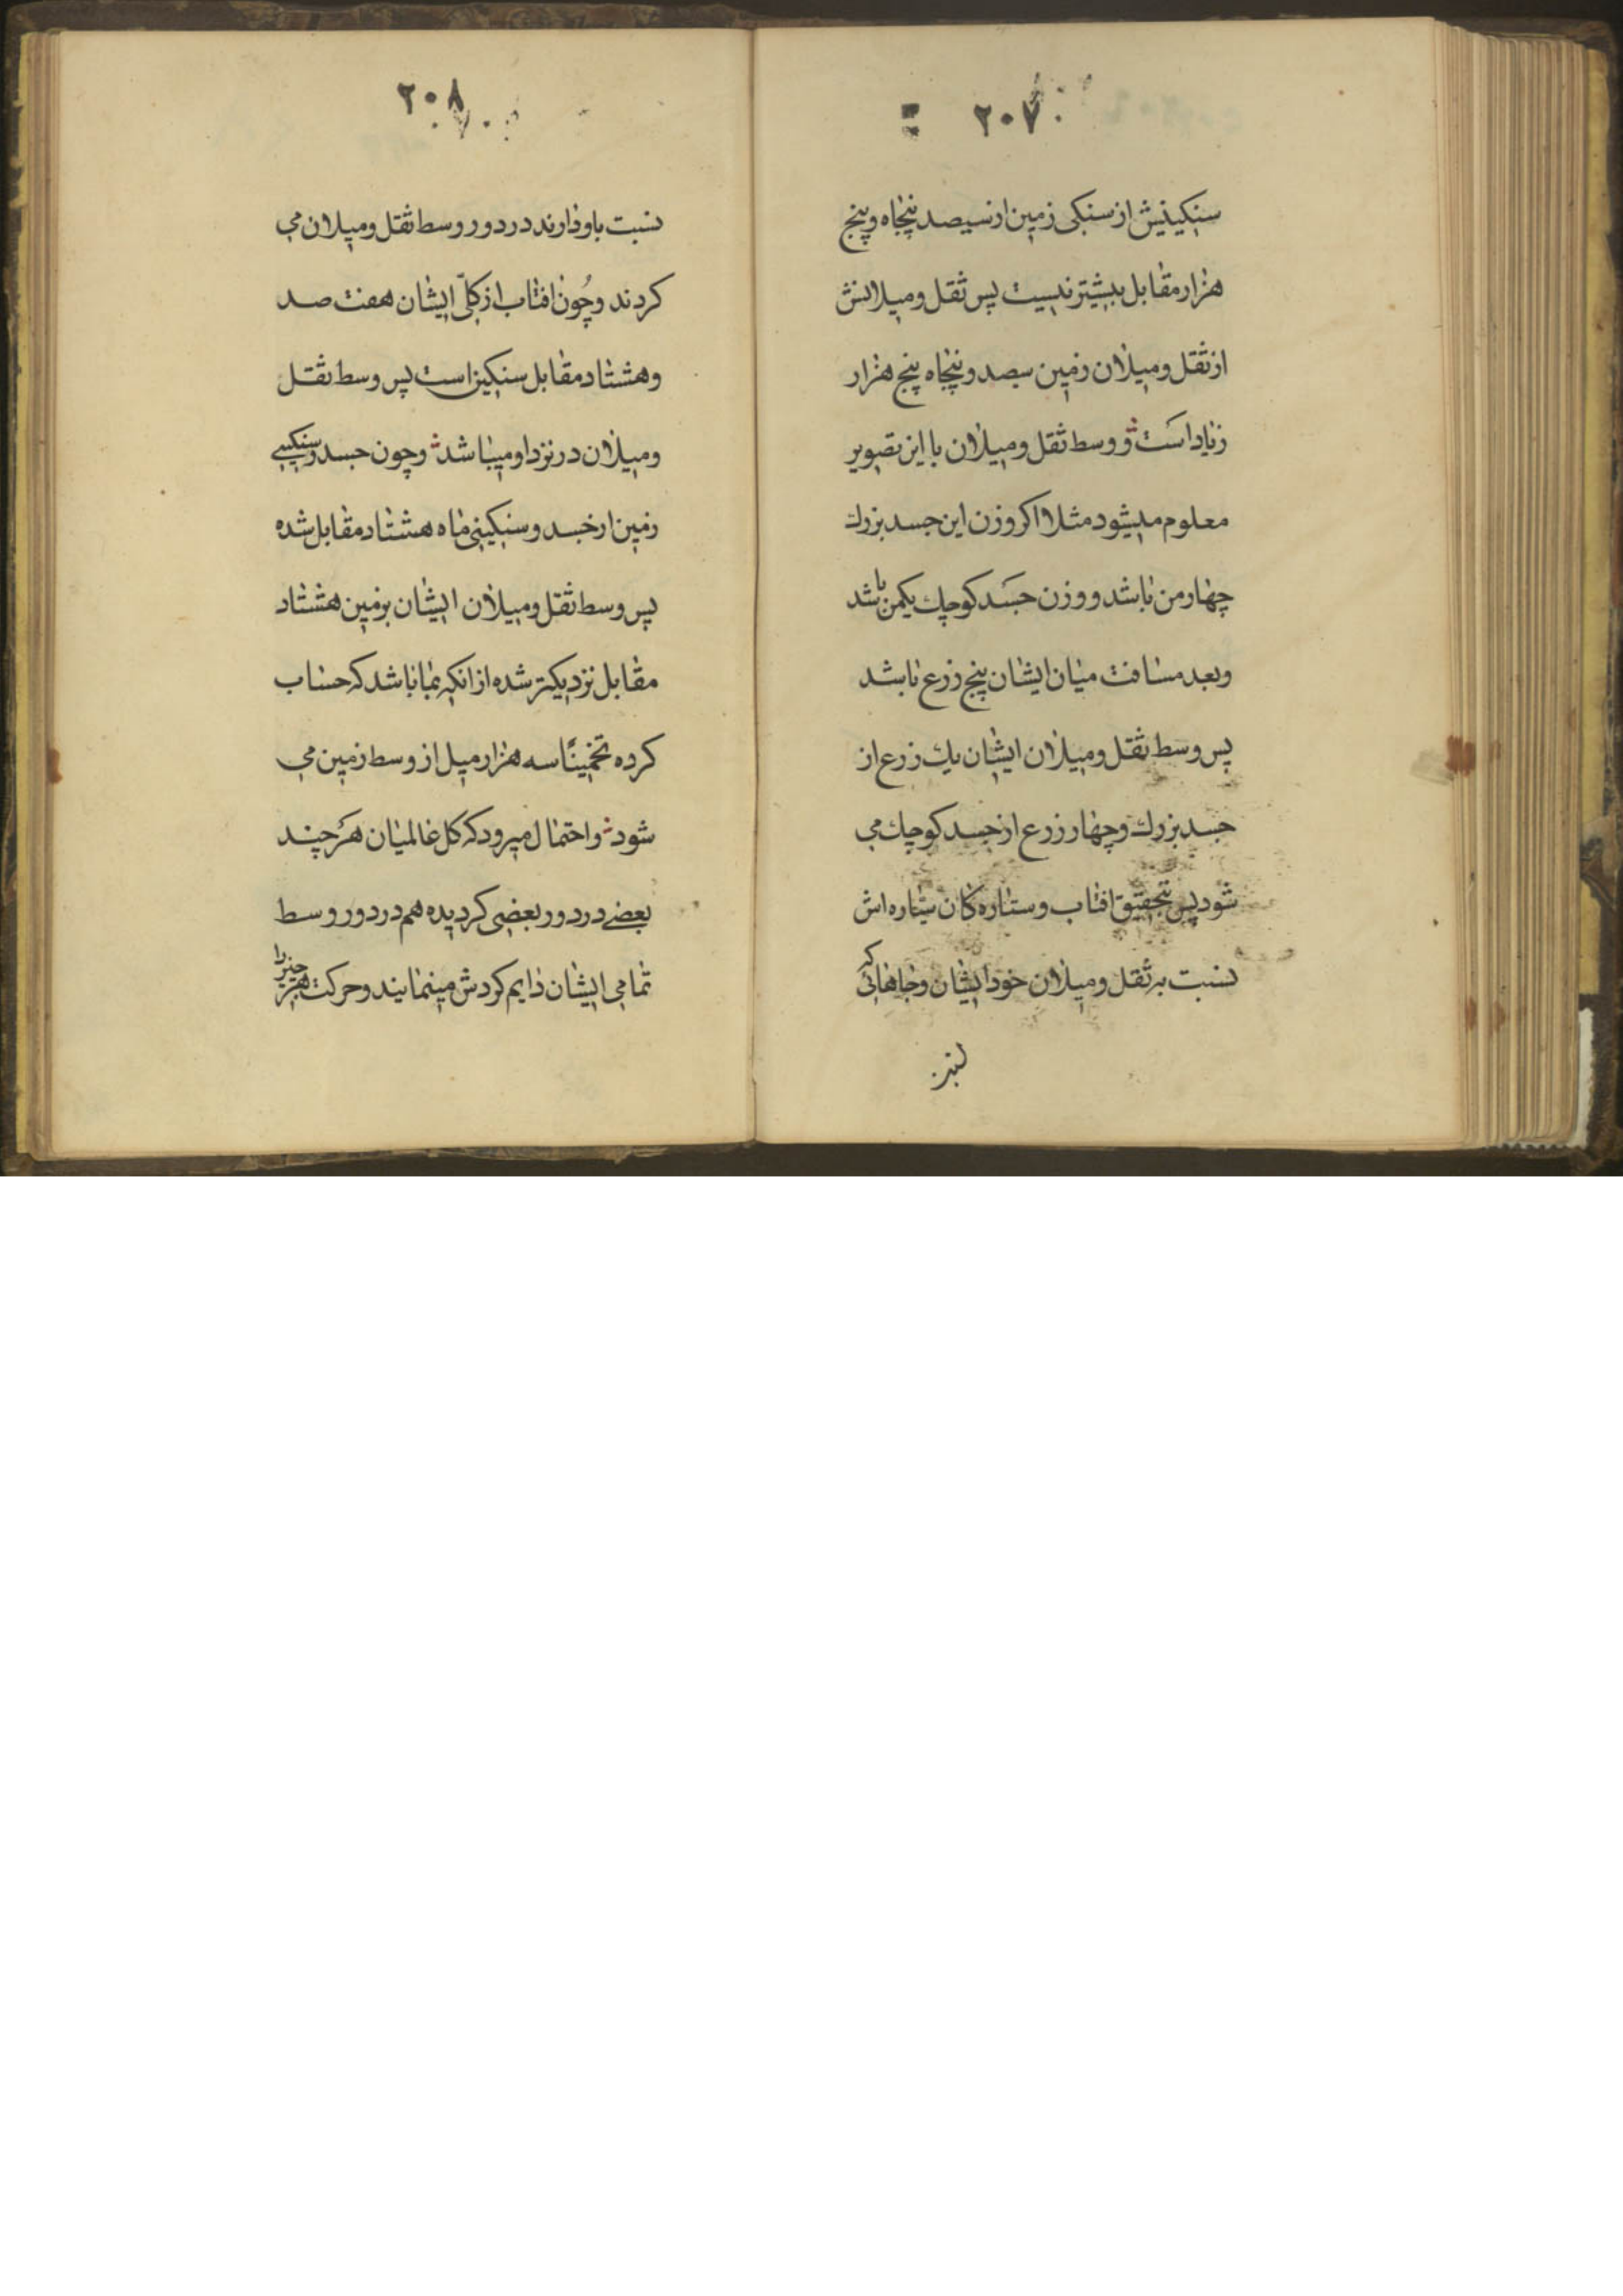 ۲۰۷
سنکینیش از سنکی زمین از سیصد پنجاه و پنج
هزار مقابل بیشتر نیست پس ثقل و میلانش
از ثقل و میلان زمین سیصد و پنجاه پنج هزار
زیاد است و وسط ثقل و میلان با این تصویر
معلوم میشود مثلا اکر وزن این جسد بزرك
چهار من باشد و وزن جسد کوچك یکمن باشد
و بعد مسافت میان ایشان پنج زرع باشد
پس وسط ثقل و میلان ایشان یك زرع از
جسد بزرك و چهار زرع از جسد کوچك می
شود پس بتحقیق افتاب و ستاره کان سیاره اش
نسبت بر ثقل و میلان خود ایشان و جاهائی که
۲۰۸
نسبت باو دارند در دور وسط ثقل و میلان می
کردند و چون افتاب از کلّ ایشان هفت صد
و هشتاد مقابل سنکین است پس وسط ثقل
و میلان در نزد او میباشد و چون جسد و سنکینی
زمین از جسد و سنکینی ماه هشتاد مقابل شده
پس وسط ثقل و میلان ایشان بزمین هشتاد
مقابل نزدیکتر شده از انکه بماه باشد که حساب
کرده تخمیناً سه هزار میل از وسط زمین می
شود و احتمال میرود که کل عالمیان هر چند
بعضی در دور بعضی کردیده هم در دور وسط
تمامی ایشان دایم کردش مینمایند و حرکت هر چیز را